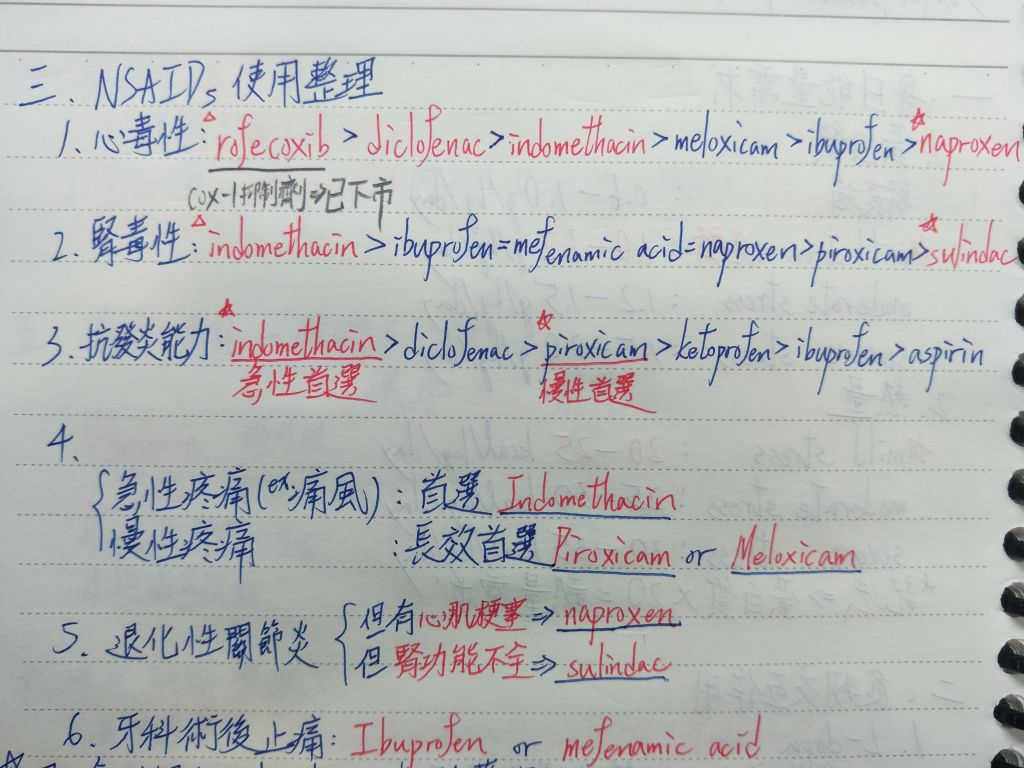 三、NSAIDs 使用整理
1. 心毒性：△rofecoxib > diclofenac > indomethacin > meloxicam > ibuprofen > ☆naproxen
COX-1抑制劑⇒已下市
2. 腎毒性：△indomethacin > ibuprofen = mefenamic acid = naproxen > piroxicam > ☆sulindac
3. 抗發炎能力：☆indomethacin > diclofenac > ☆piroxicam > ketoprofen > ibuprofen > aspirin
急性首選 慢性首選
4.
急性疼痛(ex.痛風)：首選 Indomethacin
慢性疼痛：長效首選 Piroxicam or Meloxicam
5. 退化性關節炎
但有心肌梗塞⇒naproxen
但腎功能不全⇒sulindac
6. 牙科術後止痛：Ibuprofen or mefenamic acid